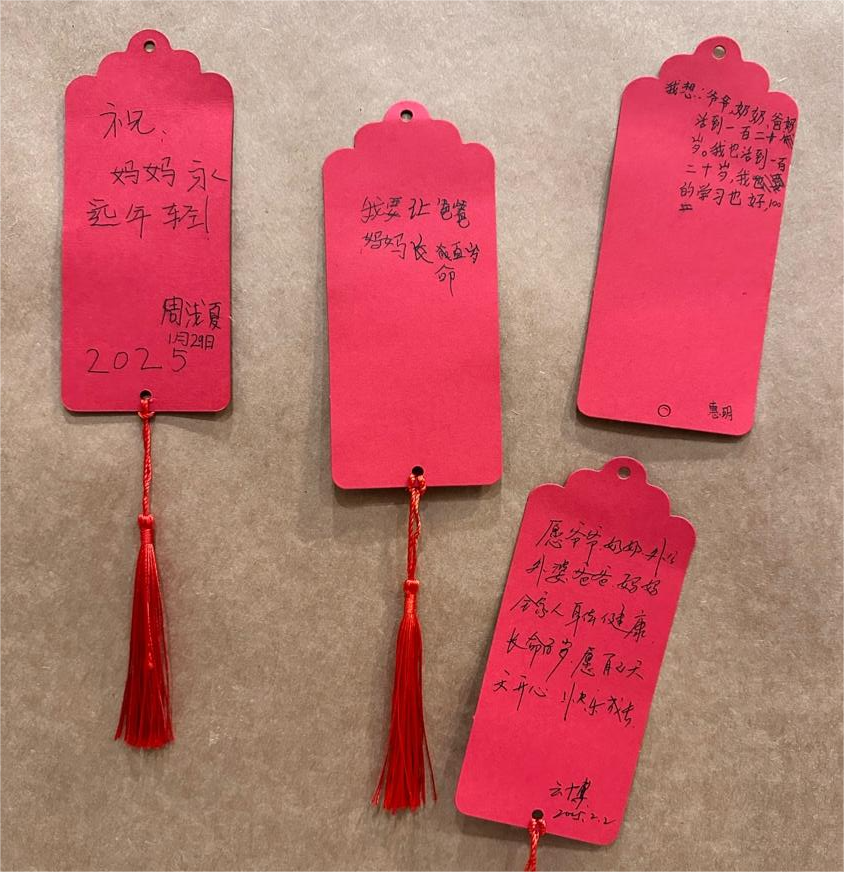 祝:
妈妈 永
远年轻
周浅夏
1月29日
2025
我要让爸爸
妈妈长百岁
命
我想:爷爷,奶奶,爸妈
活到一百二十
岁。我也活到一百
二十岁,我
的学习也好,100
惠明
愿爷爷.奶奶.外公
外婆.爸爸.妈妈
全家人身体健康.
长命百岁.愿
天开心!快乐成长.
2025.2.2